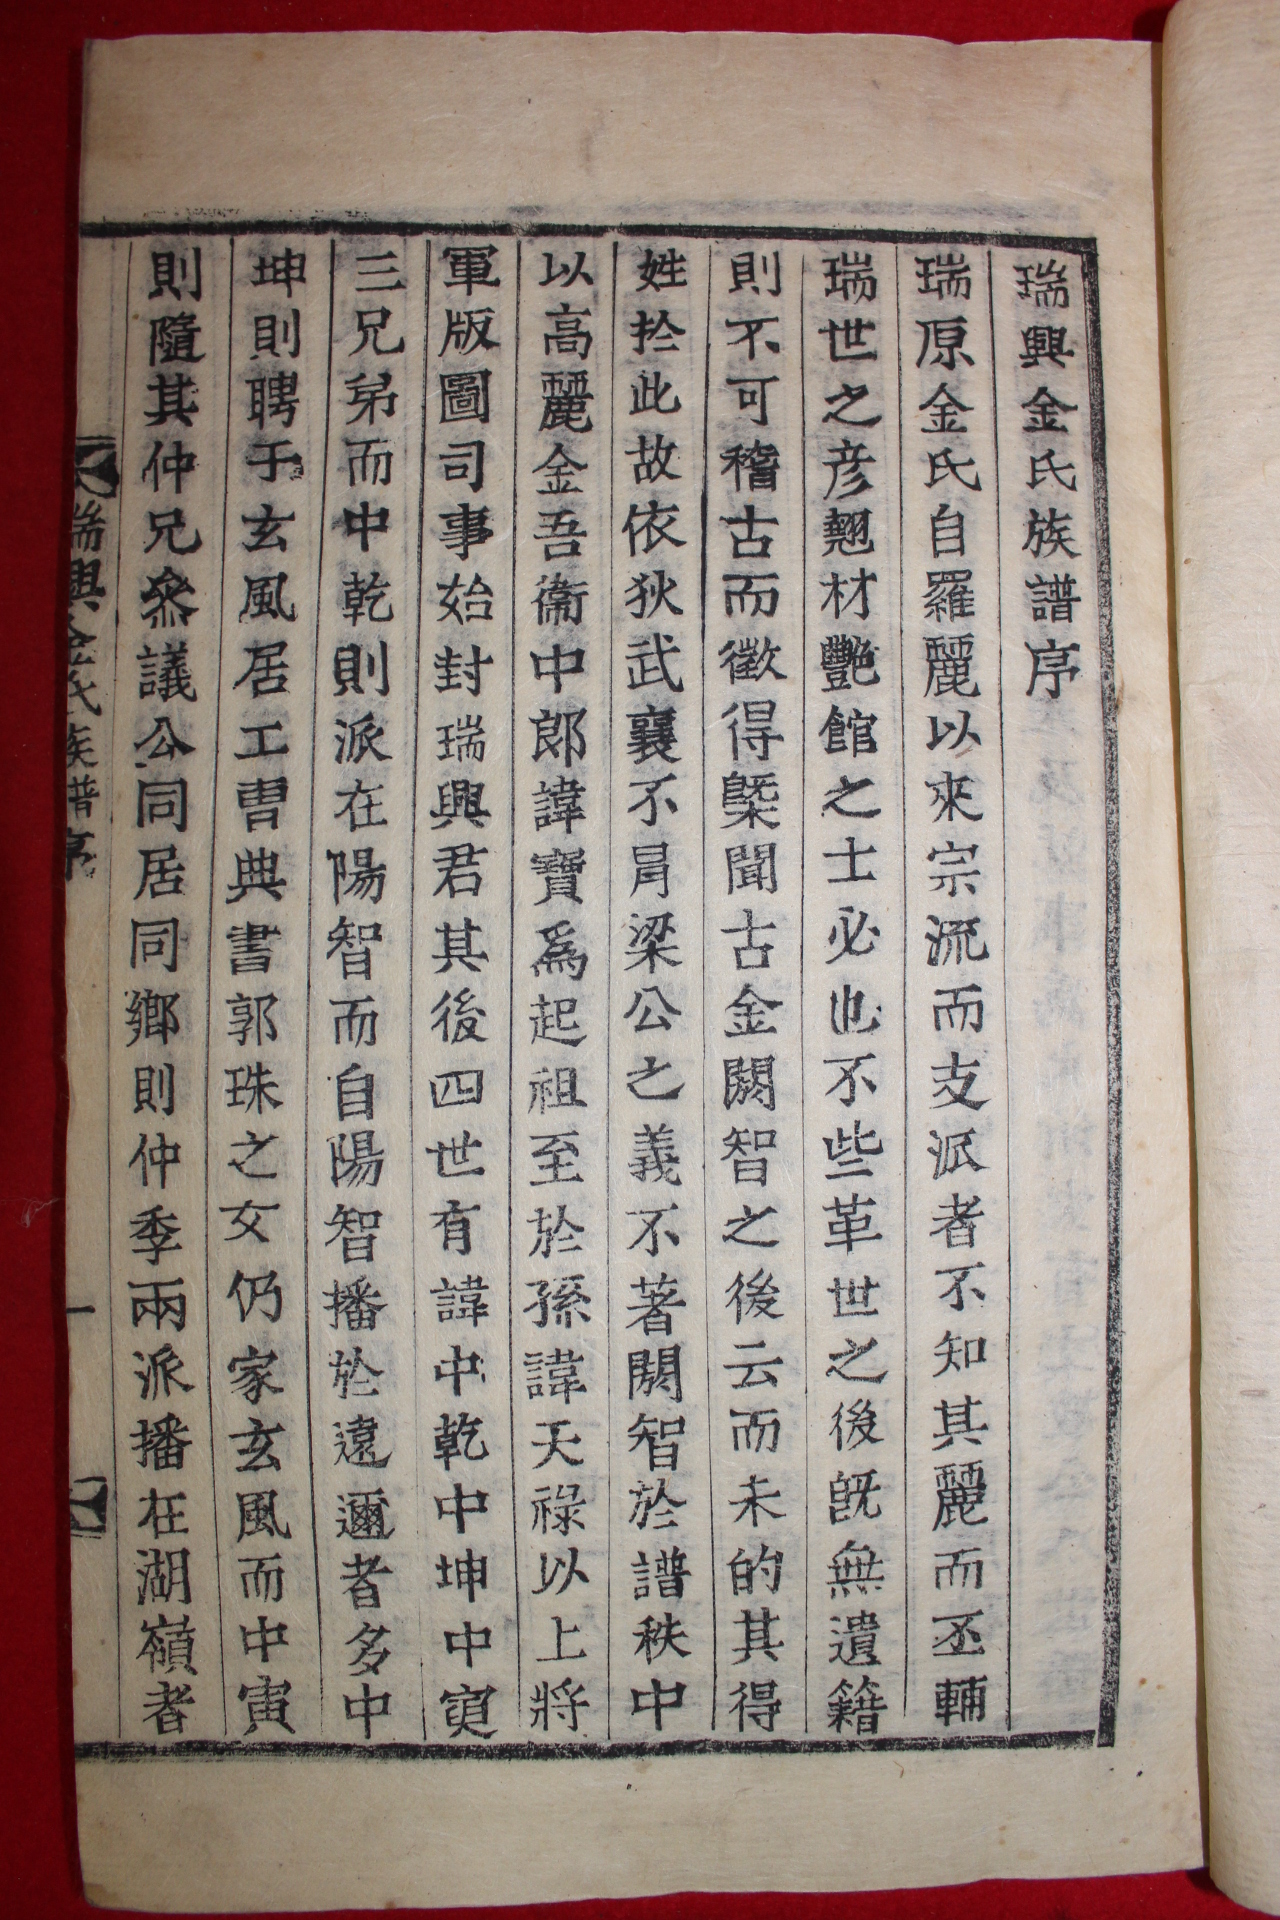 瑞興金氏族譜序
瑞原金氏自羅麗以來宗流而支派者不知其麗而丕輔
瑞世之彦翹材艷館之士必也不些革世之後旣無遺籍
則不可稽古而徵得槩聞古金閼智之後云而未的其得
姓於此故依狄武襄不冐梁公之義不著閼智於譜秩中
以高麗金吾衛中郎諱寶爲起祖至於孫諱天祿以上將
軍版圖司事始封瑞興君其後四世有諱中乾中坤中寅
三兄弟而中乾則派在陽智而自陽智播於遠邇者多中
坤則聘于玄風居工曹典書郭珠之女仍家玄風而中寅
則隨其仲兄叅議公同居同鄉則仲季兩派播在湖嶺者
瑞興金氏族譜序
一